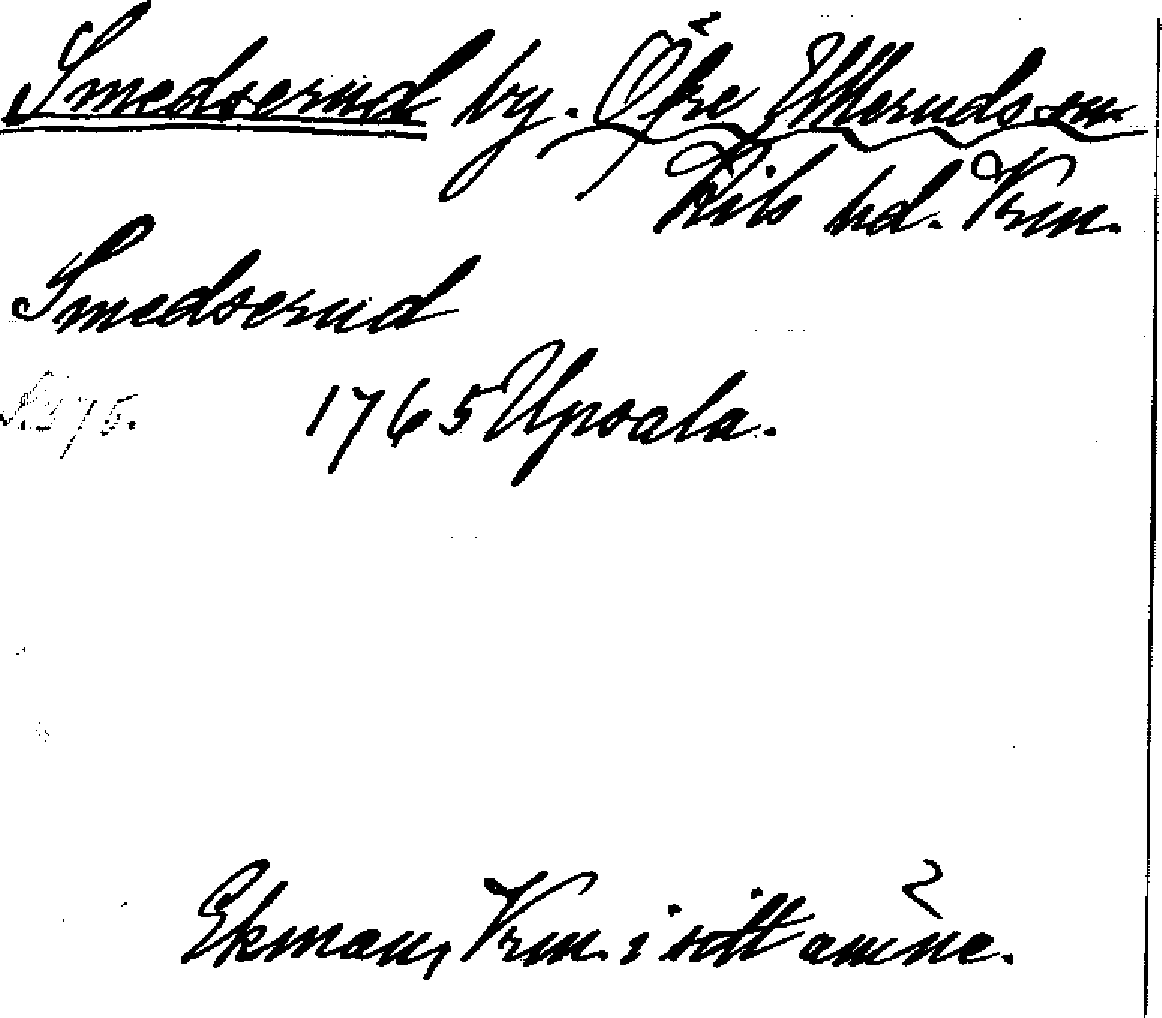 Smedserud by. Öfre Ulleruds sn.
Kils hd. Vrm.
Smedserud
S. 275.
1765 Upsala.
Ekman, Vrm. i sitt ämne.